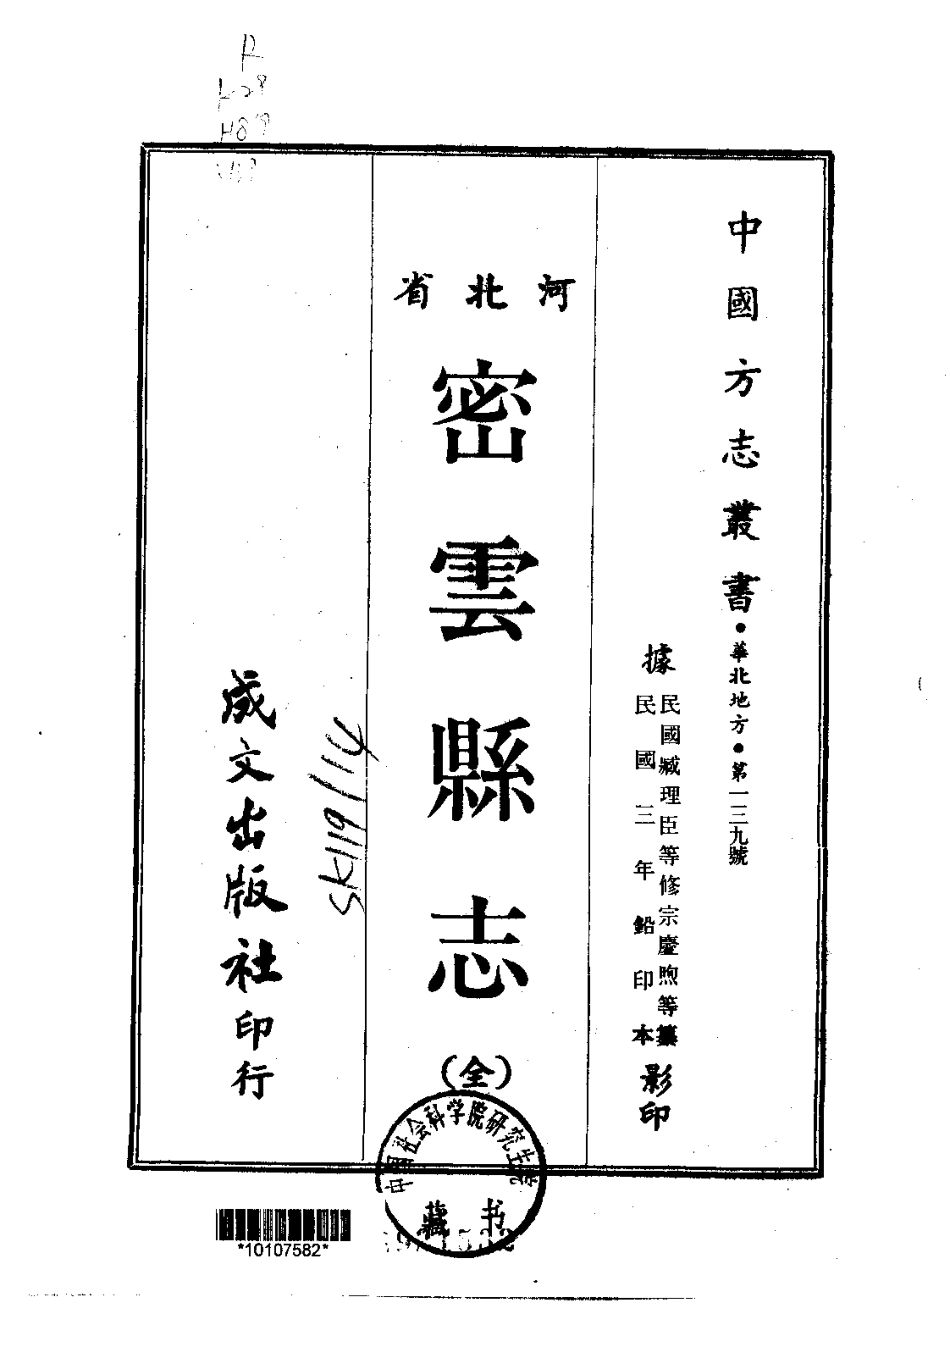 中國方志叢書・華北地方・第一三九號
據
民國臧理臣等修宗慶煦等纂
民國三年鉛印本
影印
河北省
密雲縣志
(全)
成文出版社印行
SK119/114
中国社会科学院研究生院
藏书
*10107582*